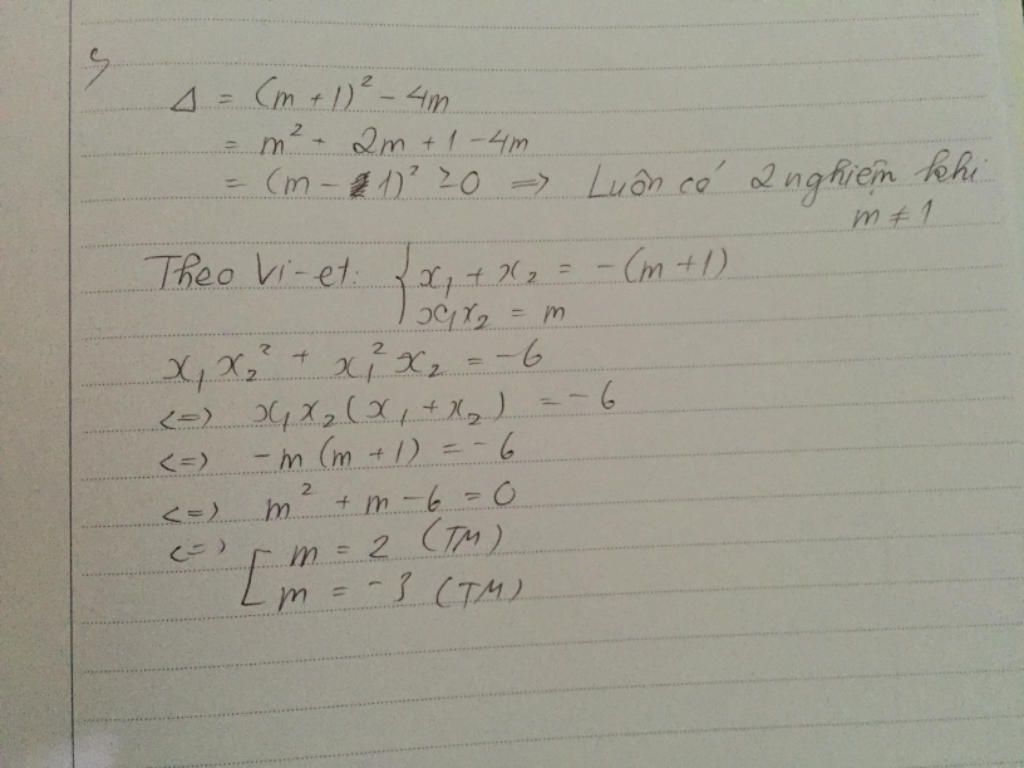 5
Δ = (m + 1)² - 4m
= m² + 2m + 1 - 4m
= (m - 1)² ≥ 0 => Luôn có 2 nghiệm khi
m ≠ 1
Theo Vi-et: { x₁ + x₂ = -(m + 1)
x₁x₂ = m
x₁x₂² + x₁²x₂ = -6
<=> x₁x₂(x₁ + x₂) = -6
<=> -m(m + 1) = -6
<=> m² + m - 6 = 0
<=> [ m = 2 (TM)
m = -3 (TM)